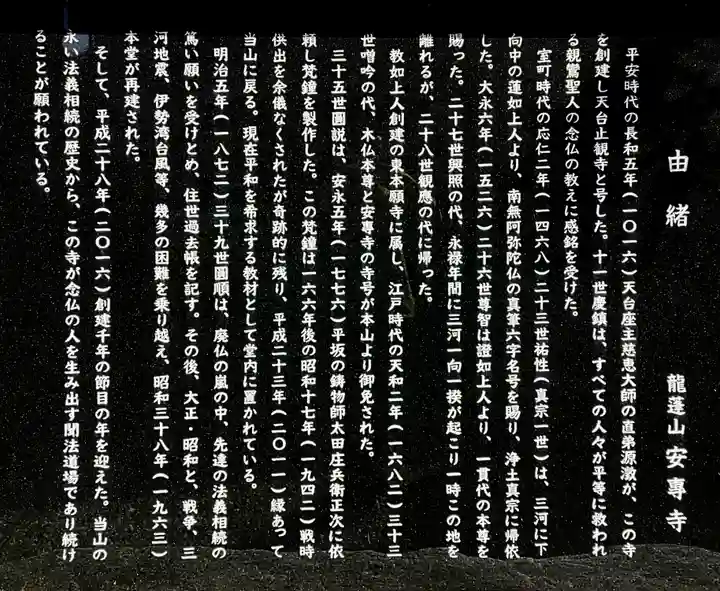 由緒
龍蓬山安專寺
平安時代の長和五年(一〇一六)天台座主慈恵大師の直弟源激が、この寺
を創建し天台止観寺と号した。十一世慶鎮は、すべての人々が平等に救われ
る親鸞聖人の念仏の教えに感銘を受けた。
室町時代の応仁二年(一四六八)二十三世祐性(真宗一世)は、三河に下
向中の蓮如上人より、南無阿弥陀仏の真筆六字名号を賜り、浄土真宗に帰依
した。大永六年(一五二六)二十六世尊智は證如上人より、一貫代の本尊を
賜った。二十七世興照の代、永禄年間に三河一向一揆が起こり一時この地を
離れるが、二十八世観應の代に帰った。
教如上人創建の東本願寺に属し、江戸時代の天和二年(一六八二)三十三
世噌吟の代、木仏本尊と安專寺の寺号が本山より御免された。
三十五世圓説は、安永五年(一七七六)平坂の鋳物師太田庄兵衛正次に依
頼し梵鐘を製作した。この梵鐘は一六六年後の昭和十七年(一九四二)戦時
供出を余儀なくされたが奇跡的に残り、平成二十三年(二〇一一)縁あって
当山に戻る。現在平和を希求する教材として堂内に置かれている。
明治五年(一八七二)三十九世圓順は、廃仏の嵐の中、先達の法義相続の
篤い願いを受けとめ、住世過去帳を記す。その後、大正・昭和と、戦争、三
河地震、伊勢湾台風等、幾多の困難を乗り越え、昭和三十八年(一九六三)
本堂が再建された。
そして、平成二十八年(二〇一六)創建千年の節目の年を迎えた。当山の
永い法義相続の歴史から、この寺が念仏の人を生み出す聞法道場であり続け
ることが願われている。